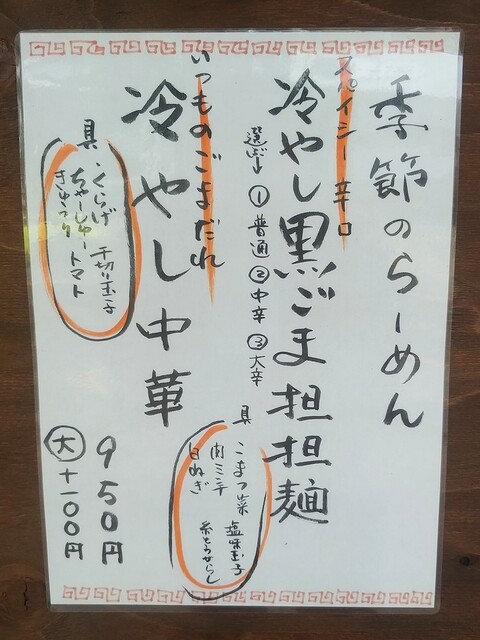 季節のらーめん
スパイシー辛口
冷やし黒ごま担担麺
選べる ①普通 ②中辛 ③大辛
具 こまつ菜 塩味玉子
肉ミンチ 糸とうがらし
白ねぎ
いつものごまだれ
冷やし中華
具 くらげ 千切り玉子
ちゃーしゅー トマト
きゅうり
950円
大+100円